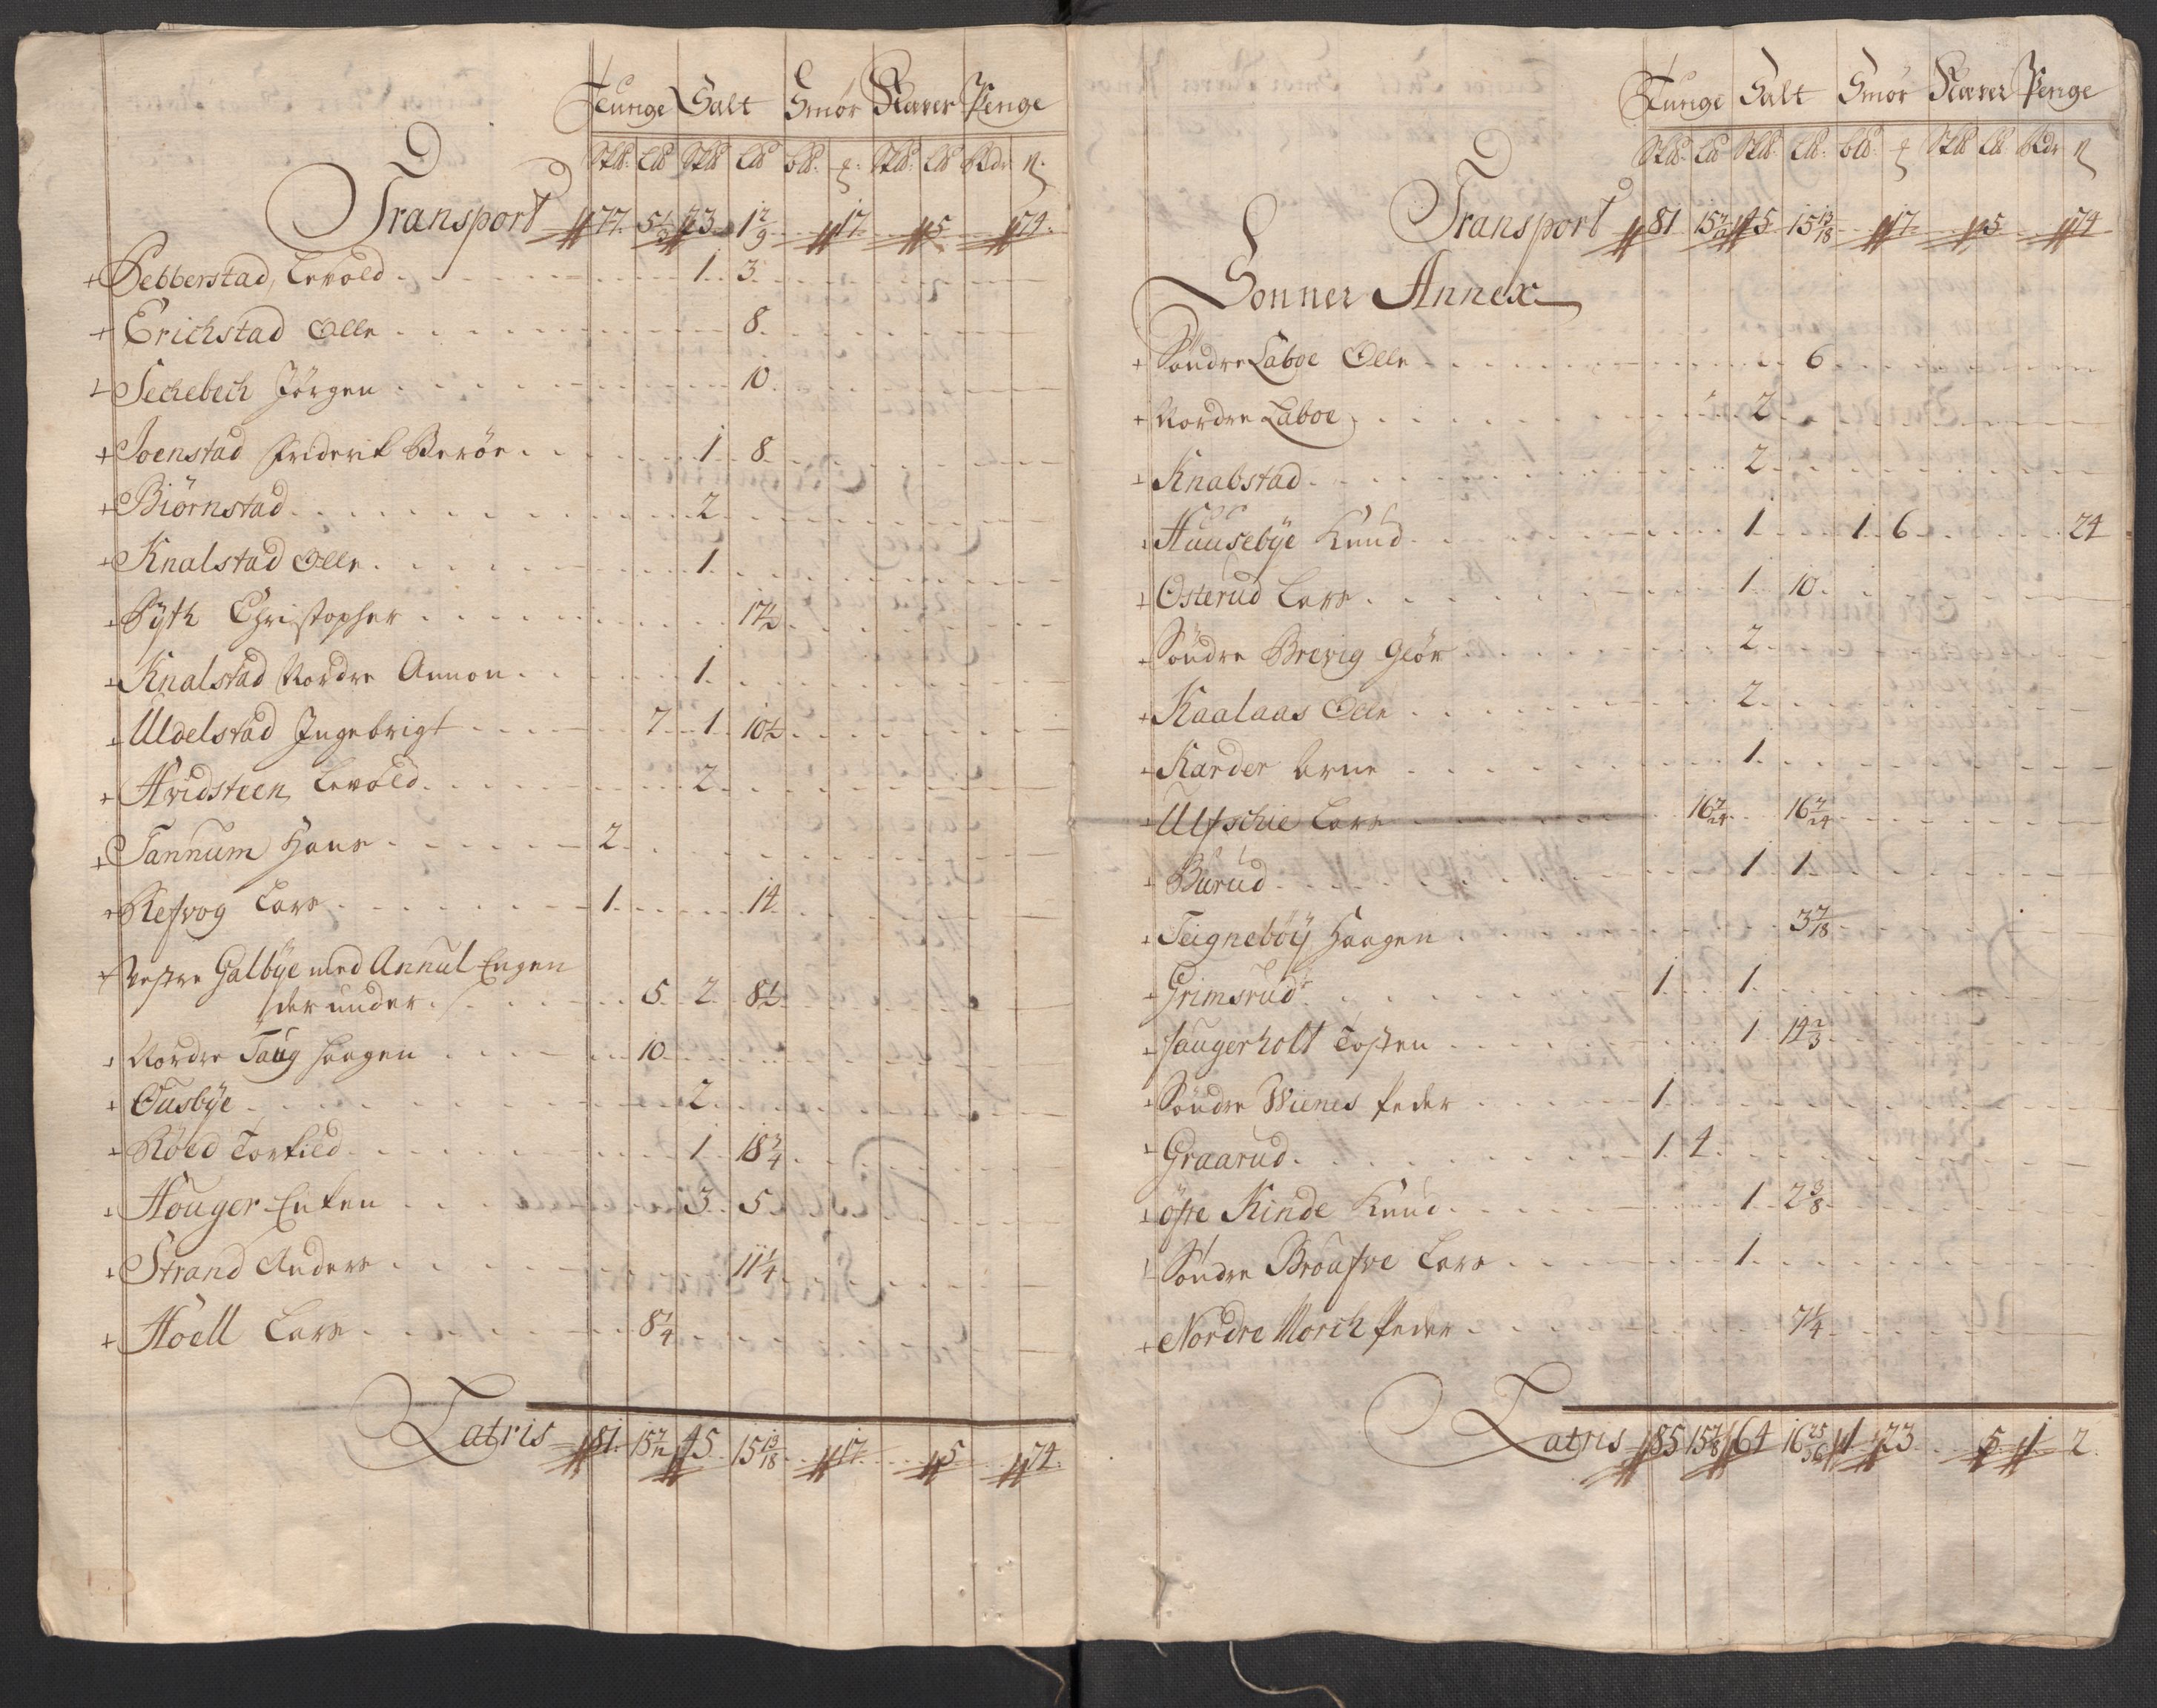 Tunge Salt Smör Narer Penge
Sk℔. L℔ Sk℔ L℔ b℔. Sk℔. L℔ Rdr
Transport 77. 5 1/3 43 1 2/9 17 5 74.
+ Sebberstad, Levold 1 3
+ Erichstad Olle 8.
+ Sechebech Jörgen 10.
+ Joenstad Friderik Beröe 1 8
+ Biörnstad 2
+ Knalstad Olle 1.
+ Pyth Christopher 17 1/2
+ Knalstad Nordre Amon 1.
+ Uldelstad Ingebrigt 7 1 10 1/2
+ Hvidsteen Levold 2
+ Tannum Hans 2
+ Refvog Lars 1. 14
+ Vestre Galbÿe med Annul Engen
der under 5 2 8 1/2
+ Nordre Taug Haagen 10
+ Ousbÿe 2
+ Röed Torkild 1 18 3/4
+ Houger Enken 3 5
+ Strand Anders 11 1/4
+ Höell Lars 8 1/4
Latris 81. 15 7/12 45 15 13/18 17. 5 74.
Tunge Salt Smör Narer Penge
Sk℔. L℔ Sk℔. L℔. b℔. Sk℔ L℔ Rdr
Transport 81 15 7/12 45 15 13/18 17 5 74
Sonner Annex
+ Söndre Laboe Olle 6
+ Nordre Laboe 2
+ Knabstad 2
+ Huusebÿe Knud 1 1 6 24
+ Osterud Lars 1 10
+ Söndre Brevig Giör 2
+ Kaalaas Olle 2
+ Karder Arne 1
+ Ulfschie Lars 16 7/24 16 7/24
+ Burud 1 1
+ Teigneböÿ Haagen 3 7/18
+ Grimsrud 1 1
+ Haugerholt Tosten 1 14 2/3
+ Söndre Wiines Peder 1
+ Graarud 1 4
+ öfre Kinde Knud 1 2 3/8
+ Söndre Broufve Lars 1
+ Nordre Morch Peder 7 1/4
Latris 85 15 7/8 64 16 25/36 1 23 5 1 2.